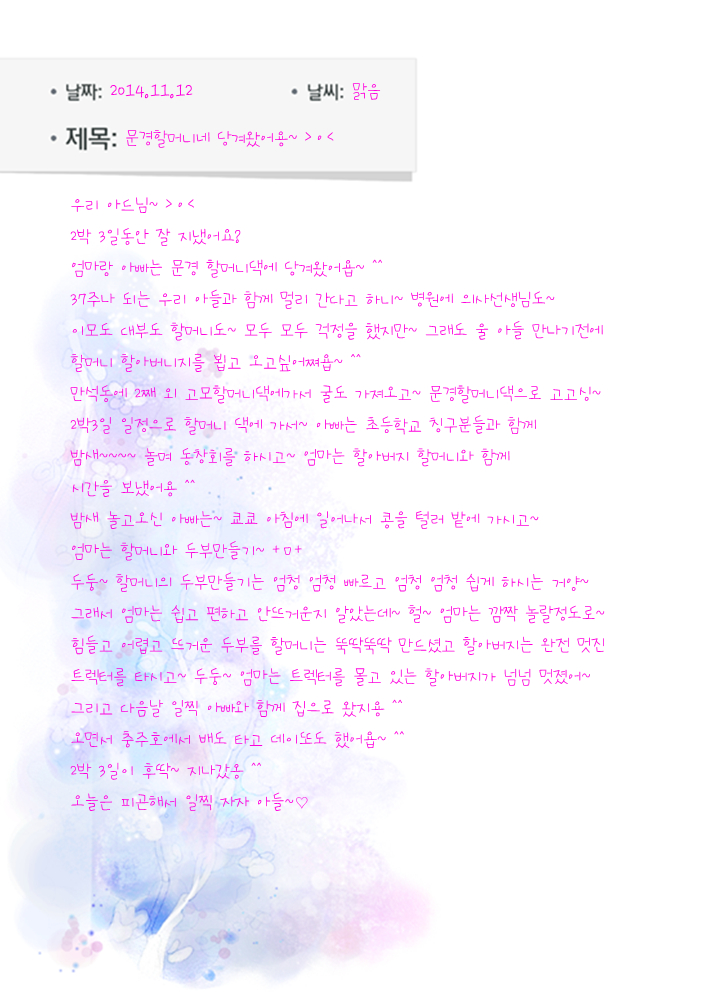 • 날짜: 2014.11.12 • 날씨: 맑음
• 제목: 문경할머니네 당겨왔어용~ >ㅇ<
우리 아드님~ >ㅇ<
2박 3일동안 잘 지냈어요?
엄마랑 아빠는 문경 할머니댁에 당겨왔어욥~ ^^
37주나 되는 우리 아들과 함께 멀리 간다고 하니~ 병원에 의사선생님도~
이모도 대부도 할머니도~ 모두 모두 걱정을 했지만~ 그래도 울 아들 만나기전에
할머니 할아버니지를 뵙고 오고싶어쪄욥~ ^^
만석동에 2째 외 고모할머니댁에가서 굴도 가져오고~ 문경할머니댁으로 고고싱~
2박3일 일정으로 할머니 댁에 가서~ 아빠는 초등학교 칭구분들과 함께
밤새~~~~ 놀며 동창회를 하시고~ 엄마는 할아버지 할머니와 함께
시간을 보냈어용 ^^
밤새 놀고오신 아빠는~ 쿄쿄 아침에 일어나서 콩을 털러 밭에 가시고~
엄마는 할머니와 두부만들기~ +ㅁ+
두둥~ 할머니의 두부만들기는 엄청 엄청 빠르고 엄청 엄청 쉽게 하시는 거양~
그래서 엄마는 쉽고 편하고 안뜨거운지 알았는데~ 헐~ 엄마는 깜짝 놀랄정도로~
힘들고 어렵고 뜨거운 두부를 할머니는 뚝딱뚝딱 만드셨고 할아버지는 완전 멋진
트렉터를 타시고~ 두둥~ 엄마는 트렉터를 몰고 있는 할아버지가 넘넘 멋졌어~
그리고 다음날 일찍 아빠와 함께 집으로 왔지용 ^^
오면서 충주호에서 배도 타고 데이또도 했어욥~ ^^
2박 3일이 후딱~ 지나갔옹 ^^
오늘은 피곤해서 일찍 자자 아들~♡